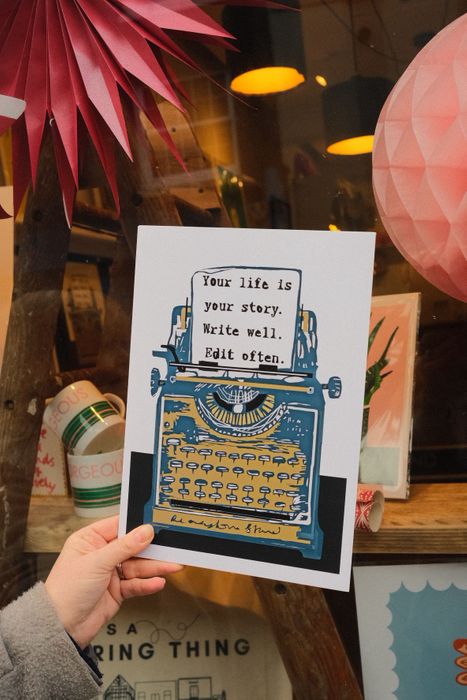 Your life is
your story.
Write well.
Edit often.
GORGEOUS
GEOUS
S A
RING THING